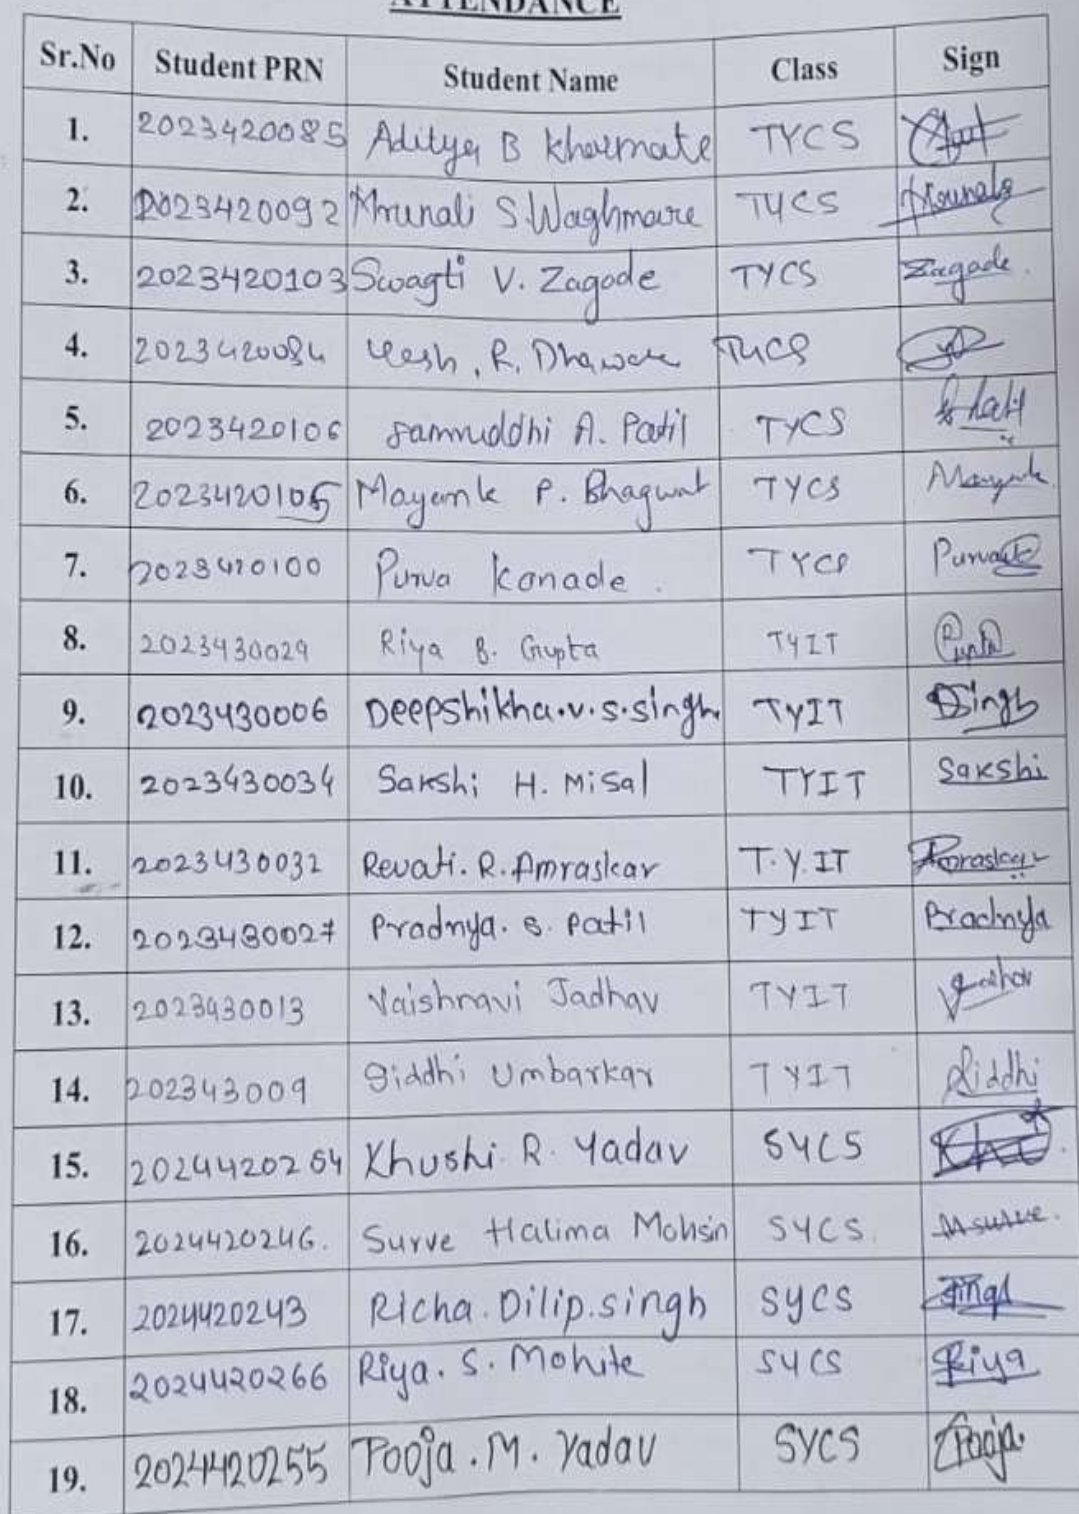 ATTENDANCE
Sr.No Student PRN Student Name Class Sign
1. 2023420085 Aditya B Kharmate TYCS
2. 2023420092 Mrunali S.Waghmare TYCS Mrunali
3. 2023420103 Swagti V. Zagade TYCS Zagade.
4. 2023420084 Yesh. R. Dhaware TYCS
5. 2023420106 Samruddhi A. Patil TYCS
6. 2023420105 Mayank P. Bhagwat TYCS Mayank
7. 2023420100 Purva Kanade. TYCS Purva
8. 2023430029 Riya B. Gupta TYIT Gupta
9. 2023430006 Deepshikha.v.s.singh. TYIT DSingh
10. 2023430034 Sakshi H. Misal TYIT Sakshi
11. 2023430032 Revati. R. Amraskar T.Y.IT Amraskar
12. 2023430027 Pradnya. S. Patil TYIT Pradnya
13. 2023430013 Vaishnavi Jadhav TYIT Jadhav
14. 202343009 Siddhi Umbarkar TYIT Siddhi
15. 2024420254 Khushi. R. Yadav SYCS
16. 2024420246. Surve Halima Mohsin SYCS. Msurve.
17. 2024420243 Richa.Dilip.singh SYCS Singh
18. 2024420266 Riya. S. Mohite SYCS Riya
19. 2024420255 Pooja.M. Yadav SYCS Pooja.